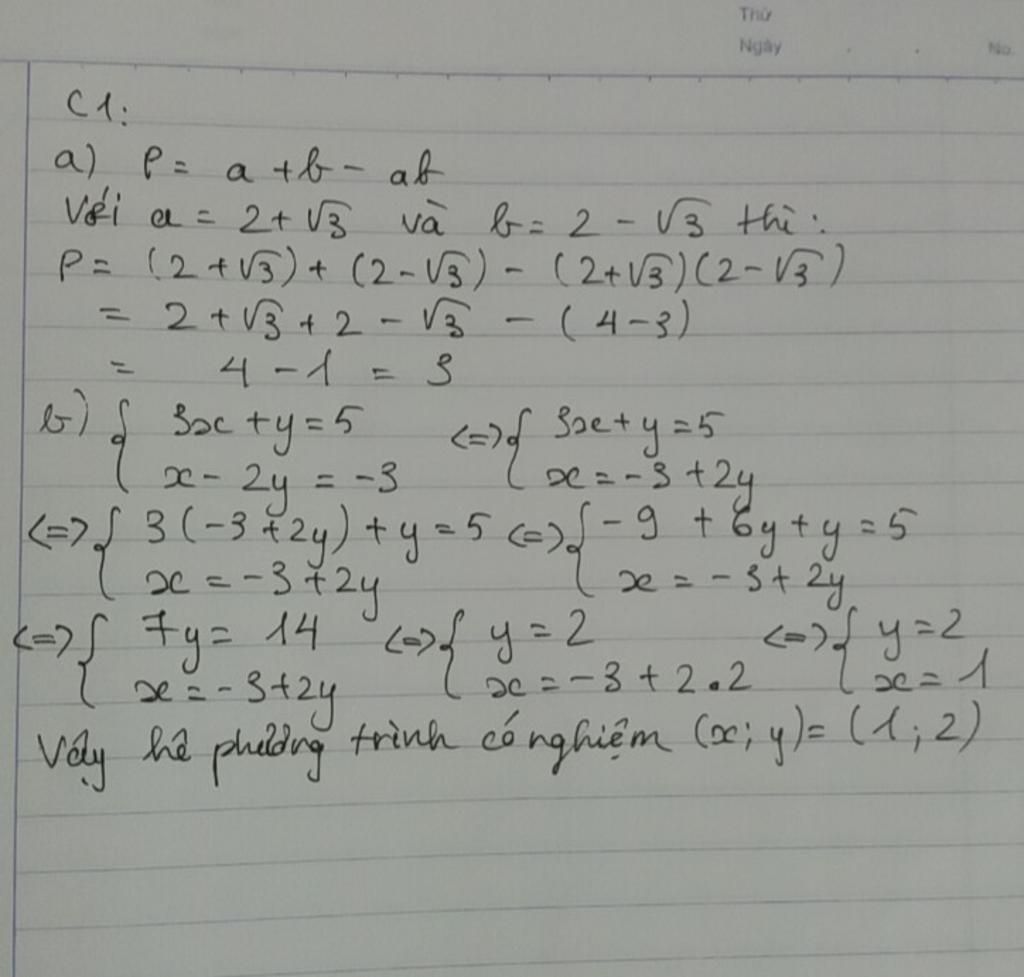 Thứ
Ngày . . No.
C1:
a) P = a + b - ab
Với a = 2 + √3 và b = 2 - √3 thì:
P = (2 + √3) + (2 - √3) - (2 + √3)(2 - √3)
= 2 + √3 + 2 - √3 - (4 - 3)
= 4 - 1 = 3
b) { 3x + y = 5 <=> { 3x + y = 5
x - 2y = -3 x = -3 + 2y
<=> { 3(-3 + 2y) + y = 5 <=> { -9 + 6y + y = 5
x = -3 + 2y x = -3 + 2y
<=> { 7y = 14 <=> { y = 2 <=> { y = 2
x = -3 + 2y x = -3 + 2.2 x = 1
Vậy hê phương trình có nghiệm (x; y) = (1; 2)